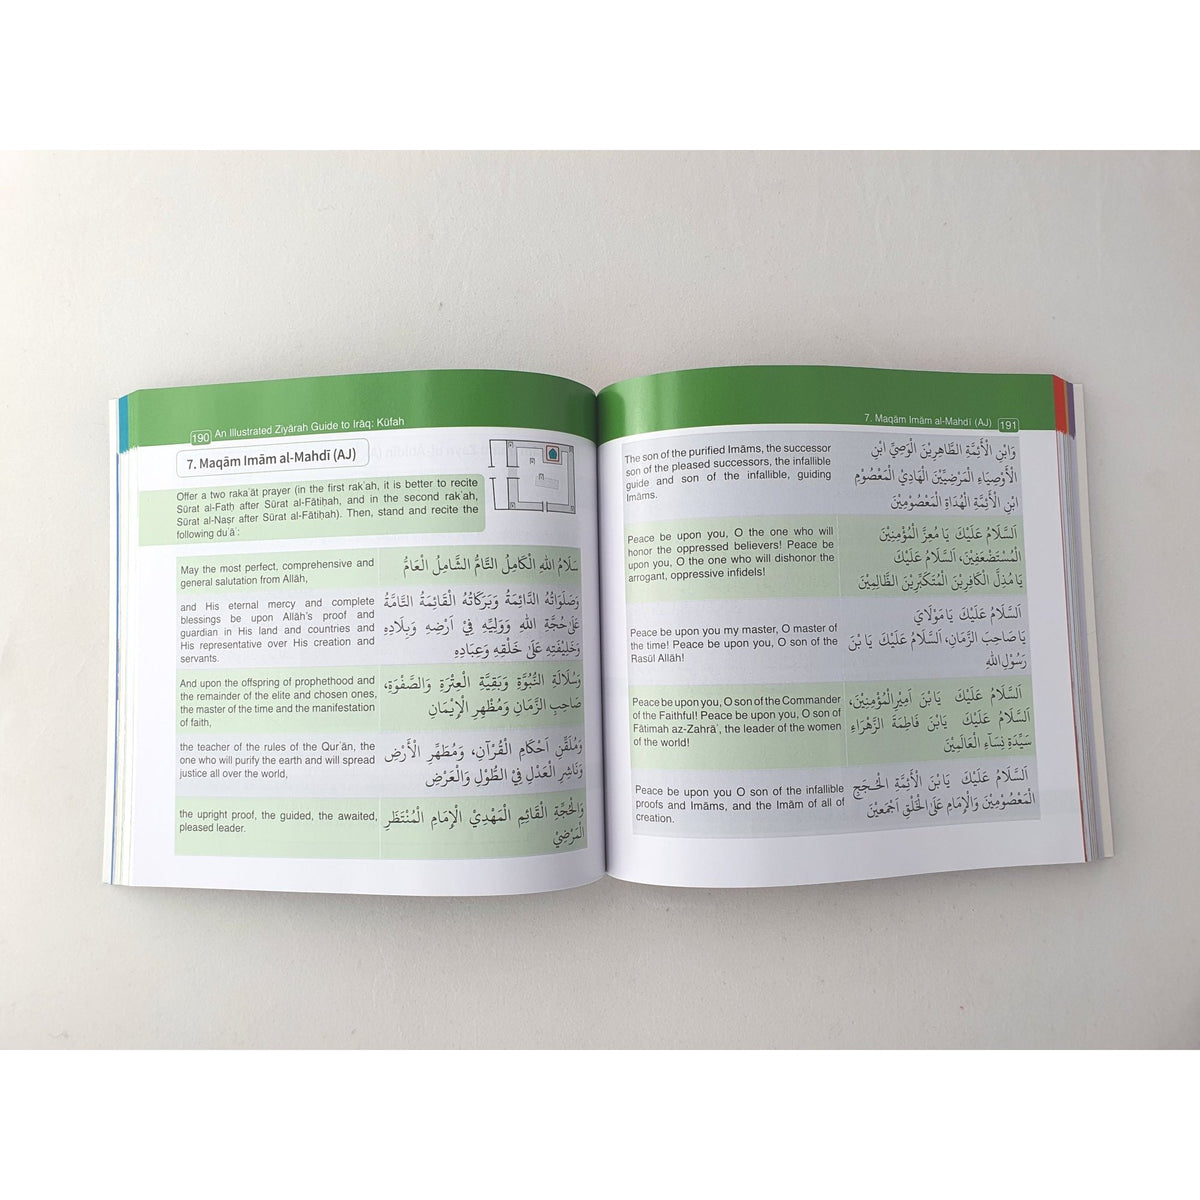 190 An Illustrated Ziyārah Guide to Irāq: Kūfah
7. Maqām Imām al-Mahdī (AJ)
Offer a two rakaʿāt prayer (in the first rakʿah, it is better to recite
Sūrat al-Fatḥ after Sūrat al-Fātiḥah, and in the second rakʿah,
Sūrat al-Naṣr after Sūrat al-Fātiḥah). Then, stand and recite the
following duʿāʾ:
May the most perfect, comprehensive and
general salutation from Allāh,
سَلَامُ اللهِ الْكَامِلُ التَّامُّ الشَّامِلُ الْعَامُّ
and His eternal mercy and complete
blessings be upon Allāh's proof and
guardian in His land and countries and
His representative over His creation and
servants.
وَصَلَوَاتُهُ الدَّائِمَةُ وَبَرَكَاتُهُ الْقَائِمَةُ التَّامَّةُ
عَلىٰ حُجَّةِ اللهِ وَوَلِيِّهِ فِيْ اَرْضِهِ وَبِلَادِهِ
وَخَلِيْفَتِهِ عَلىٰ خَلْقِهِ وَعِبَادِهِ
And upon the offspring of prophethood and
the remainder of the elite and chosen ones,
the master of the time and the manifestation
of faith,
وَسُلَالَةِ النُّبُوَّةِ وَبَقِيَّةِ الْعِتْرَةِ وَالصَّفْوَةِ،
صَاحِبِ الزَّمَانِ وَمُظْهِرِ الْإِيْمَانِ
the teacher of the rules of the Qurʾān, the
one who will purify the earth and will spread
justice all over the world,
وَمُلَقِّنِ اَحْكَامِ الْقُرْآنِ، وَمُطَهِّرِ الْأَرْضِ
وَنَاشِرِ الْعَدْلِ فِيْ الطُّوْلِ وَالْعَرْضِ
the upright proof, the guided, the awaited,
pleased leader.
وَالْحُجَّةِ الْقَائِمِ الْمَهْدِيْ الْإِمَامِ الْمُنْتَظَرِ
الْمَرْضِيْ
7. Maqām Imām al-Mahdī (AJ) 191
The son of the purified Imams, the successor
son of the pleased successors, the infallible
guide and son of the infallible, guiding
Imāms.
وَابْنِ الْأَئِمَّةِ الطَّاهِرِيْنَ الْوَصِيِّ ابْنِ
الْأَوْصِيَاءِ الْمَرْضِيِّيْنَ الْهَادِيْ الْمَعْصُوْمِ
ابْنِ الْأَئِمَّةِ الْهُدَاةِ الْمَعْصُوْمِيْنَ
Peace be upon you, O the one who will
honor the oppressed believers! Peace be
upon you, O the one who will dishonor the
arrogant, oppressive infidels!
اَلسَّلَامُ عَلَيْكَ يَا مُعِزَّ الْمُؤْمِنِيْنَ
الْمُسْتَضْعَفِيْنَ، اَلسَّلَامُ عَلَيْكَ
يَا مُذِلَّ الْكَافِرِيْنَ الْمُتَكَبِّرِيْنَ الظَّالِمِيْنَ
Peace be upon you my master, O master of
the time! Peace be upon you, O son of the
Rasūl Allāh!
اَلسَّلَامُ عَلَيْكَ يَا مَوْلَايَ
يَا صَاحِبَ الزَّمَانِ، اَلسَّلَامُ عَلَيْكَ يَا بْنَ
رَسُوْلِ اللهِ
Peace be upon you, O son of the Commander
of the Faithful! Peace be upon you, O son of
Fāṭimah az-Zahrāʾ, the leader of the women
of the world!
اَلسَّلَامُ عَلَيْكَ يَابْنَ اَمِيْرِ الْمُؤْمِنِيْنَ،
اَلسَّلَامُ عَلَيْكَ يَابْنَ فَاطِمَةَ الزَّهْرَاءِ
سَيِّدَةِ نِسَاءِ الْعَالَمِيْنَ
Peace be upon you O son of the infallible
proofs and Imāms, and the Imām of all of
creation.
اَلسَّلَامُ عَلَيْكَ يَابْنَ الْأَئِمَّةِ الْحُجَجِ
الْمَعْصُوْمِيْنَ وَالْإِمَامِ عَلىَ الْخَلْقِ اَجْمَعِيْنَ